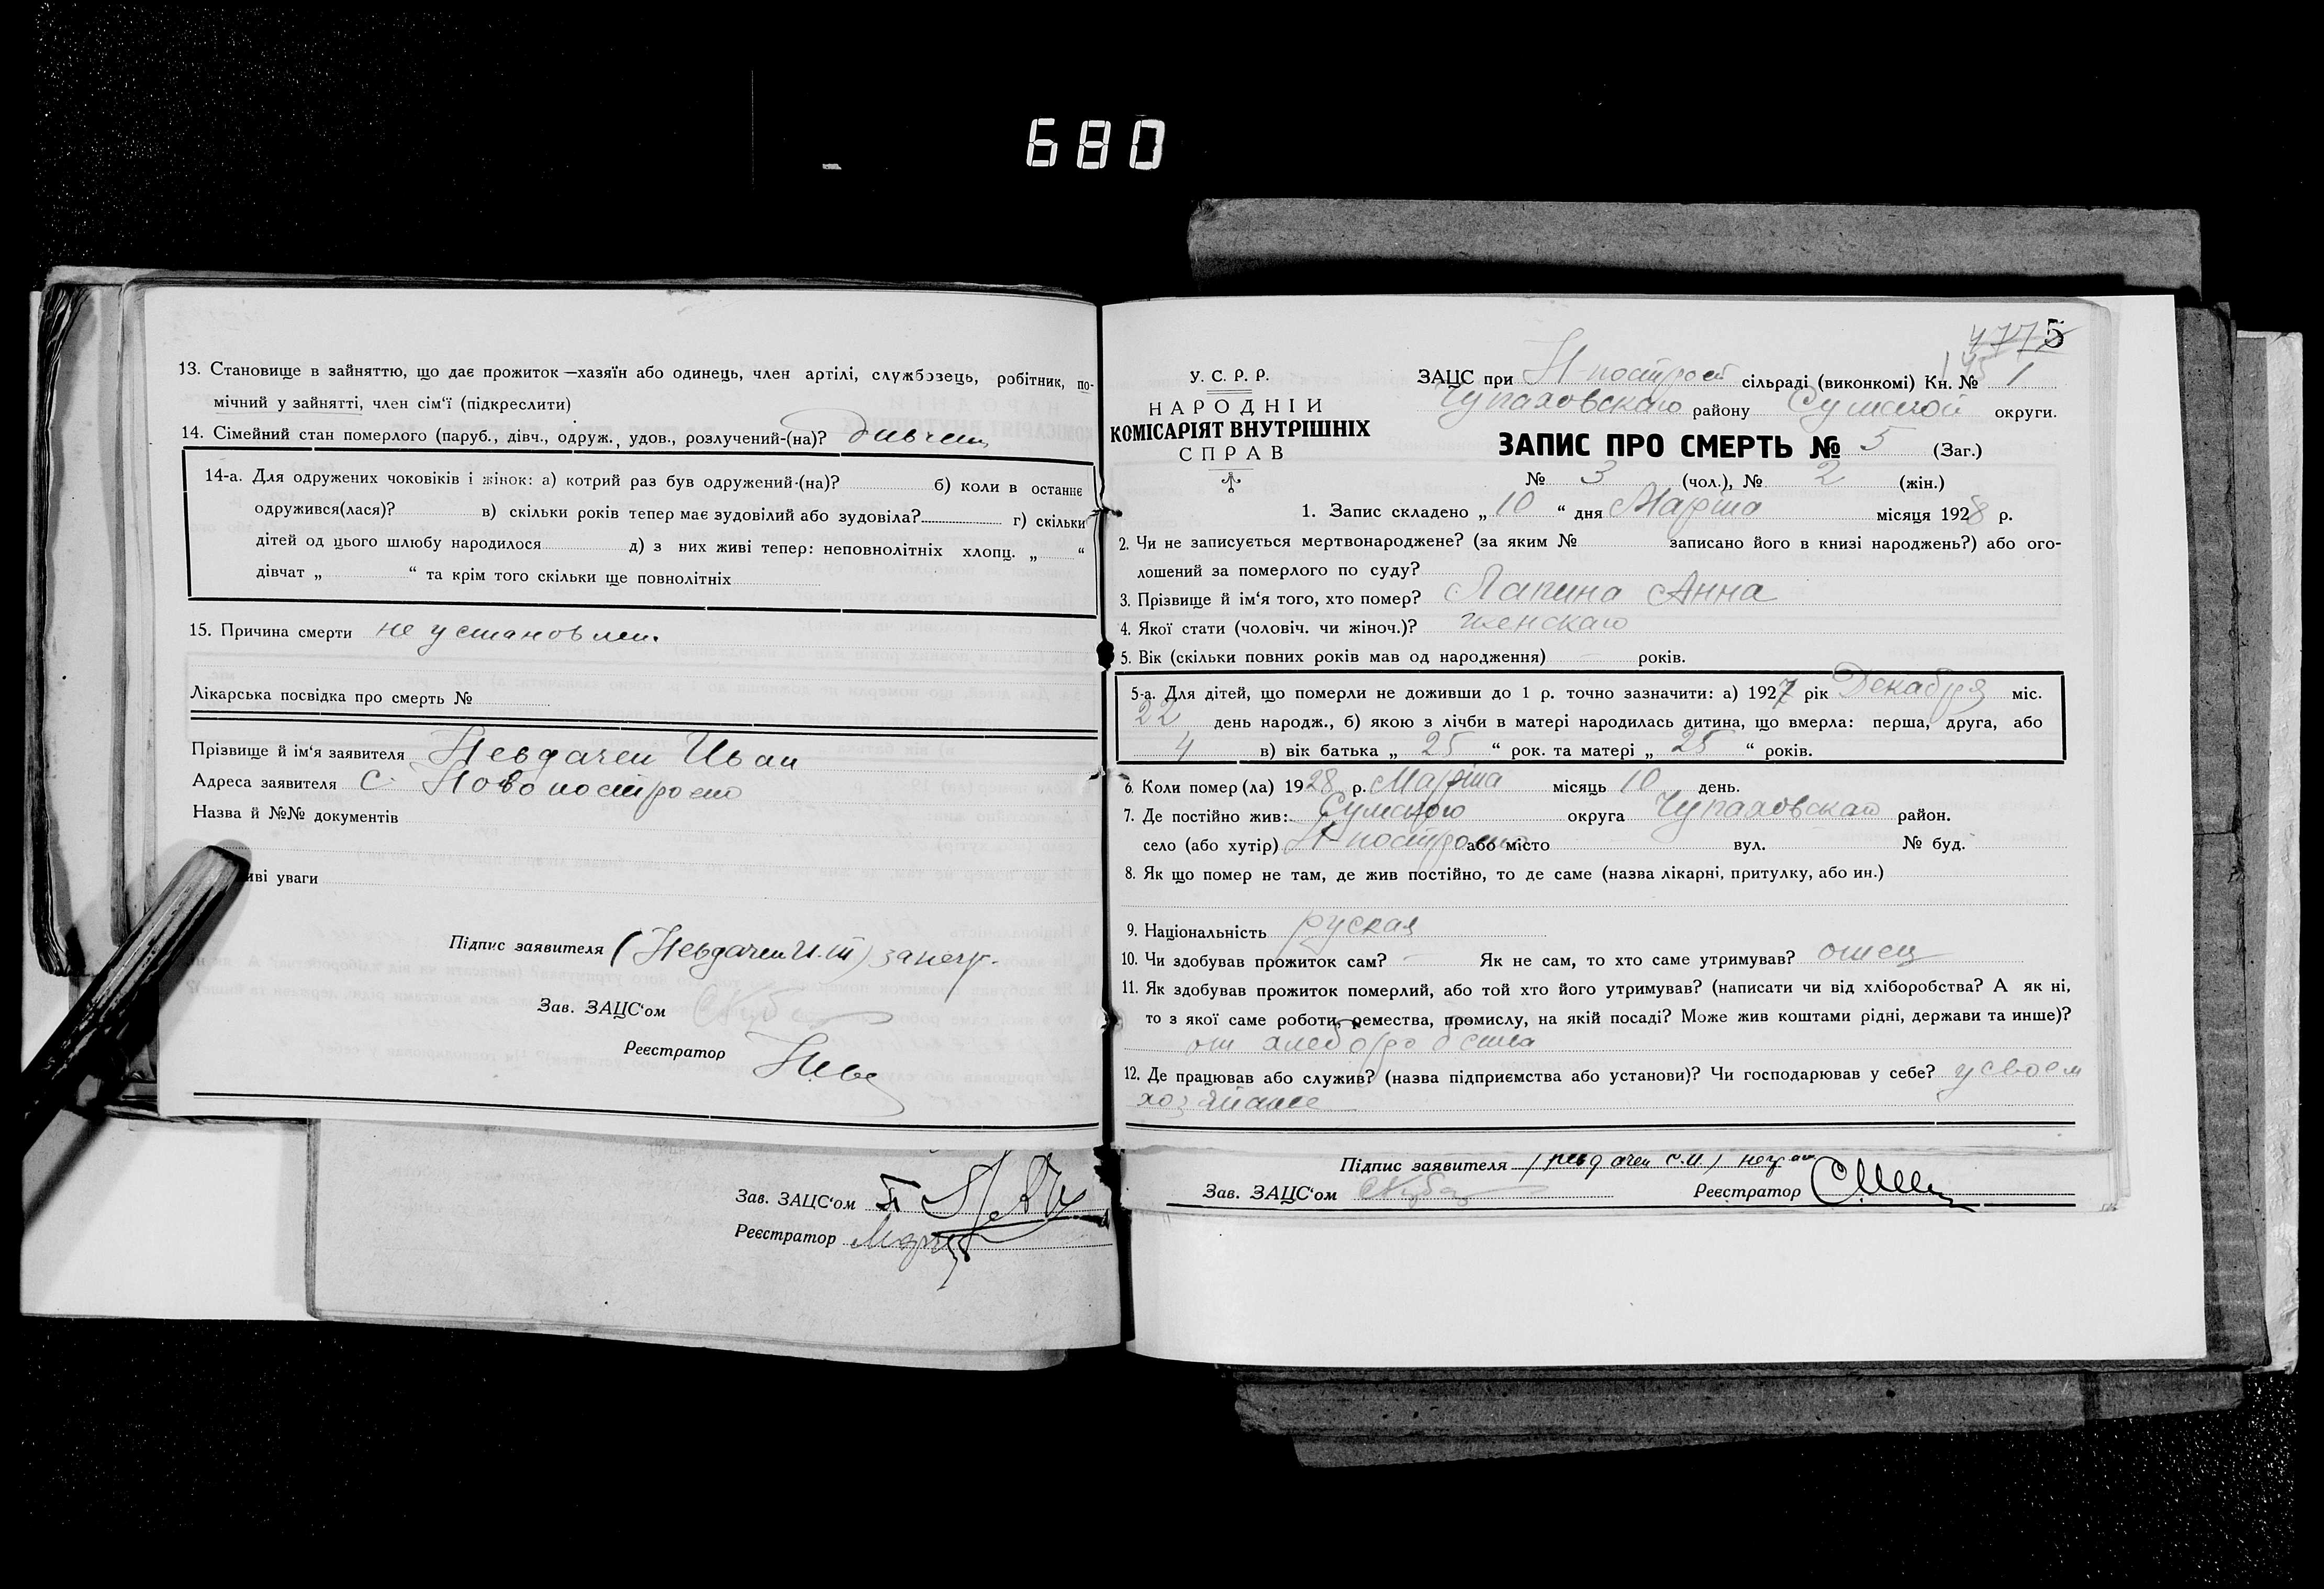 680
13. Становище в зайняттю, що дає прожиток—хазяїн або одинець, член артілі, службовець, робітник, по-
мічний у зайнятті, член сім'ї (підкреслити)
14. Сімейний стан померлого (паруб., дівч., одруж., удов., розлучений-(на)?
14-а. Для одружених чоковіків і жінок: а) котрий раз був одружений-(на)? б) коли в останнє
одружився(лася)? в) скільки років тепер має зудовілий або зудовіла? г) скільки
дітей од цього шлюбу народилося д) з них живі тепер: неповнолітніх хлопц. „ “
дівчат „ “ та крім того скільки ще повнолітніх
15. Причина смерти не установлен.
Лікарська посвідка про смерть №
Прізвище й ім'я заявителя Невдачен Иван
Адреса заявителя С. Новопостроено
Назва й №№ документів
иві уваги
Підпис заявителя (Невдачен И.
Зав. ЗАЦС'ом
Реєстратор
Зав. ЗАЦС'ом
Реєстратор
5
У. С. Р. Р.
НАРОДНІЙ
КОМІСАРІЯТ ВНУТРІШНІХ
СПРАВ
ЗАЦС при Н-построен сільраді (виконкомі) Кн. № 1
Чупаховскаго району Сумской округи.
ЗАПИС ПРО СМЕРТЬ № 5 (Заг.)
№ 3 (чол.), № 2 (жін.)
1. Запис складено „ 10 “ дня Марта місяця 1928 р.
2. Чи не записується мертвонароджене? (за яким № записано його в книзі народжень?) або ого-
лошений за померлого по суду?
3. Прізвище й ім'я того, хто помер? Лапина Анна
4. Якої стати (чоловіч. чи жіноч.)? женскаго
5. Вік (скільки повних років мав од народження) — років.
5-а. Для дітей, що померли не доживши до 1 р. точно зазначити: а) 1927 рік Декабря міс.
22 день народж., б) якою з лічби в матері народилась дитина, що вмерла: перша, друга, або
4 в) вік батька „ 25 “ рок. та матері „ 25 “ років.
6. Коли помер (ла) 1928 р. Марта місяць 10 день.
7. Де постійно жив: Сумского округа Чупаховскаго район.
село (або хутір) Н-построено або місто вул. № буд.
8. Як що помер не там, де жив постійно, то де саме (назва лікарні, притулку, або ин.)
9. Національність руская
10. Чи здобував прожиток сам? — Як не сам, то хто саме утримував? отец
11. Як здобував прожиток померлий, або той хто його утримував? (написати чи від хліборобства? А як ні,
то з якої саме роботи, ремества, промислу, на якій посаді? Може жив коштами рідні, держави та инше)?
от хлеборобства
12. Де працював або служив? (назва підприємства або установи)? Чи господарював у себе? у своем
хозяйстве
Підпис заявителя
Зав. ЗАЦС'ом Реєстратор